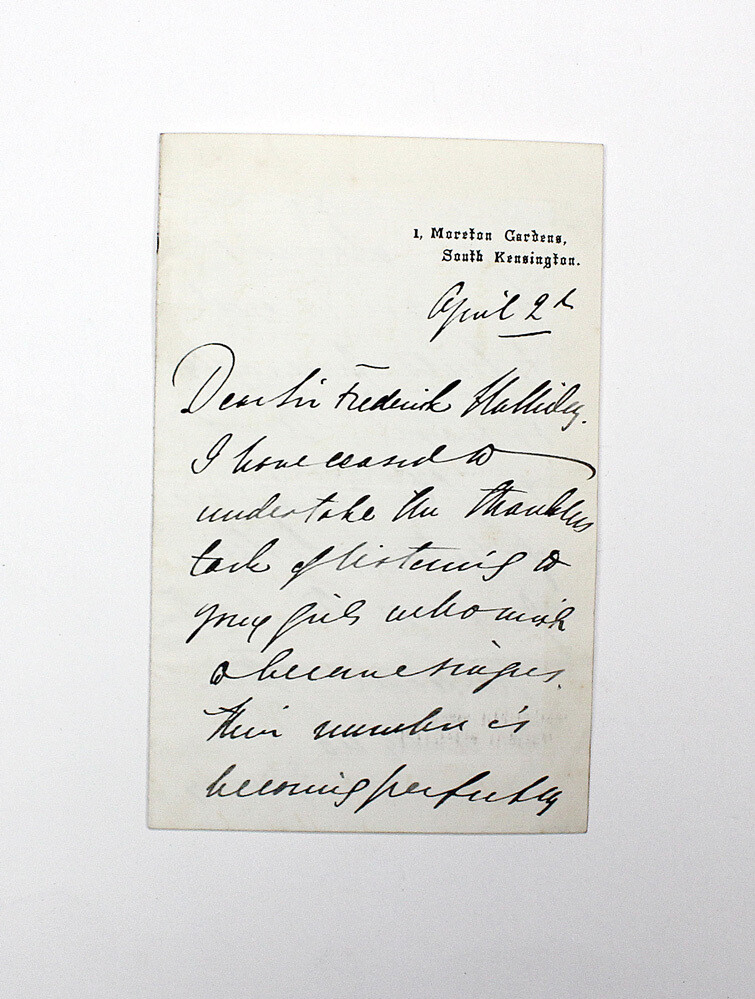 1, Moreton Gardens,
South Kensington.
April 2d
Dear Sir Frederick Halliday.
I have ceased to
undertake the thankless
task of listening to
young girls who wish
to become singers.
their number is
becoming perfectly